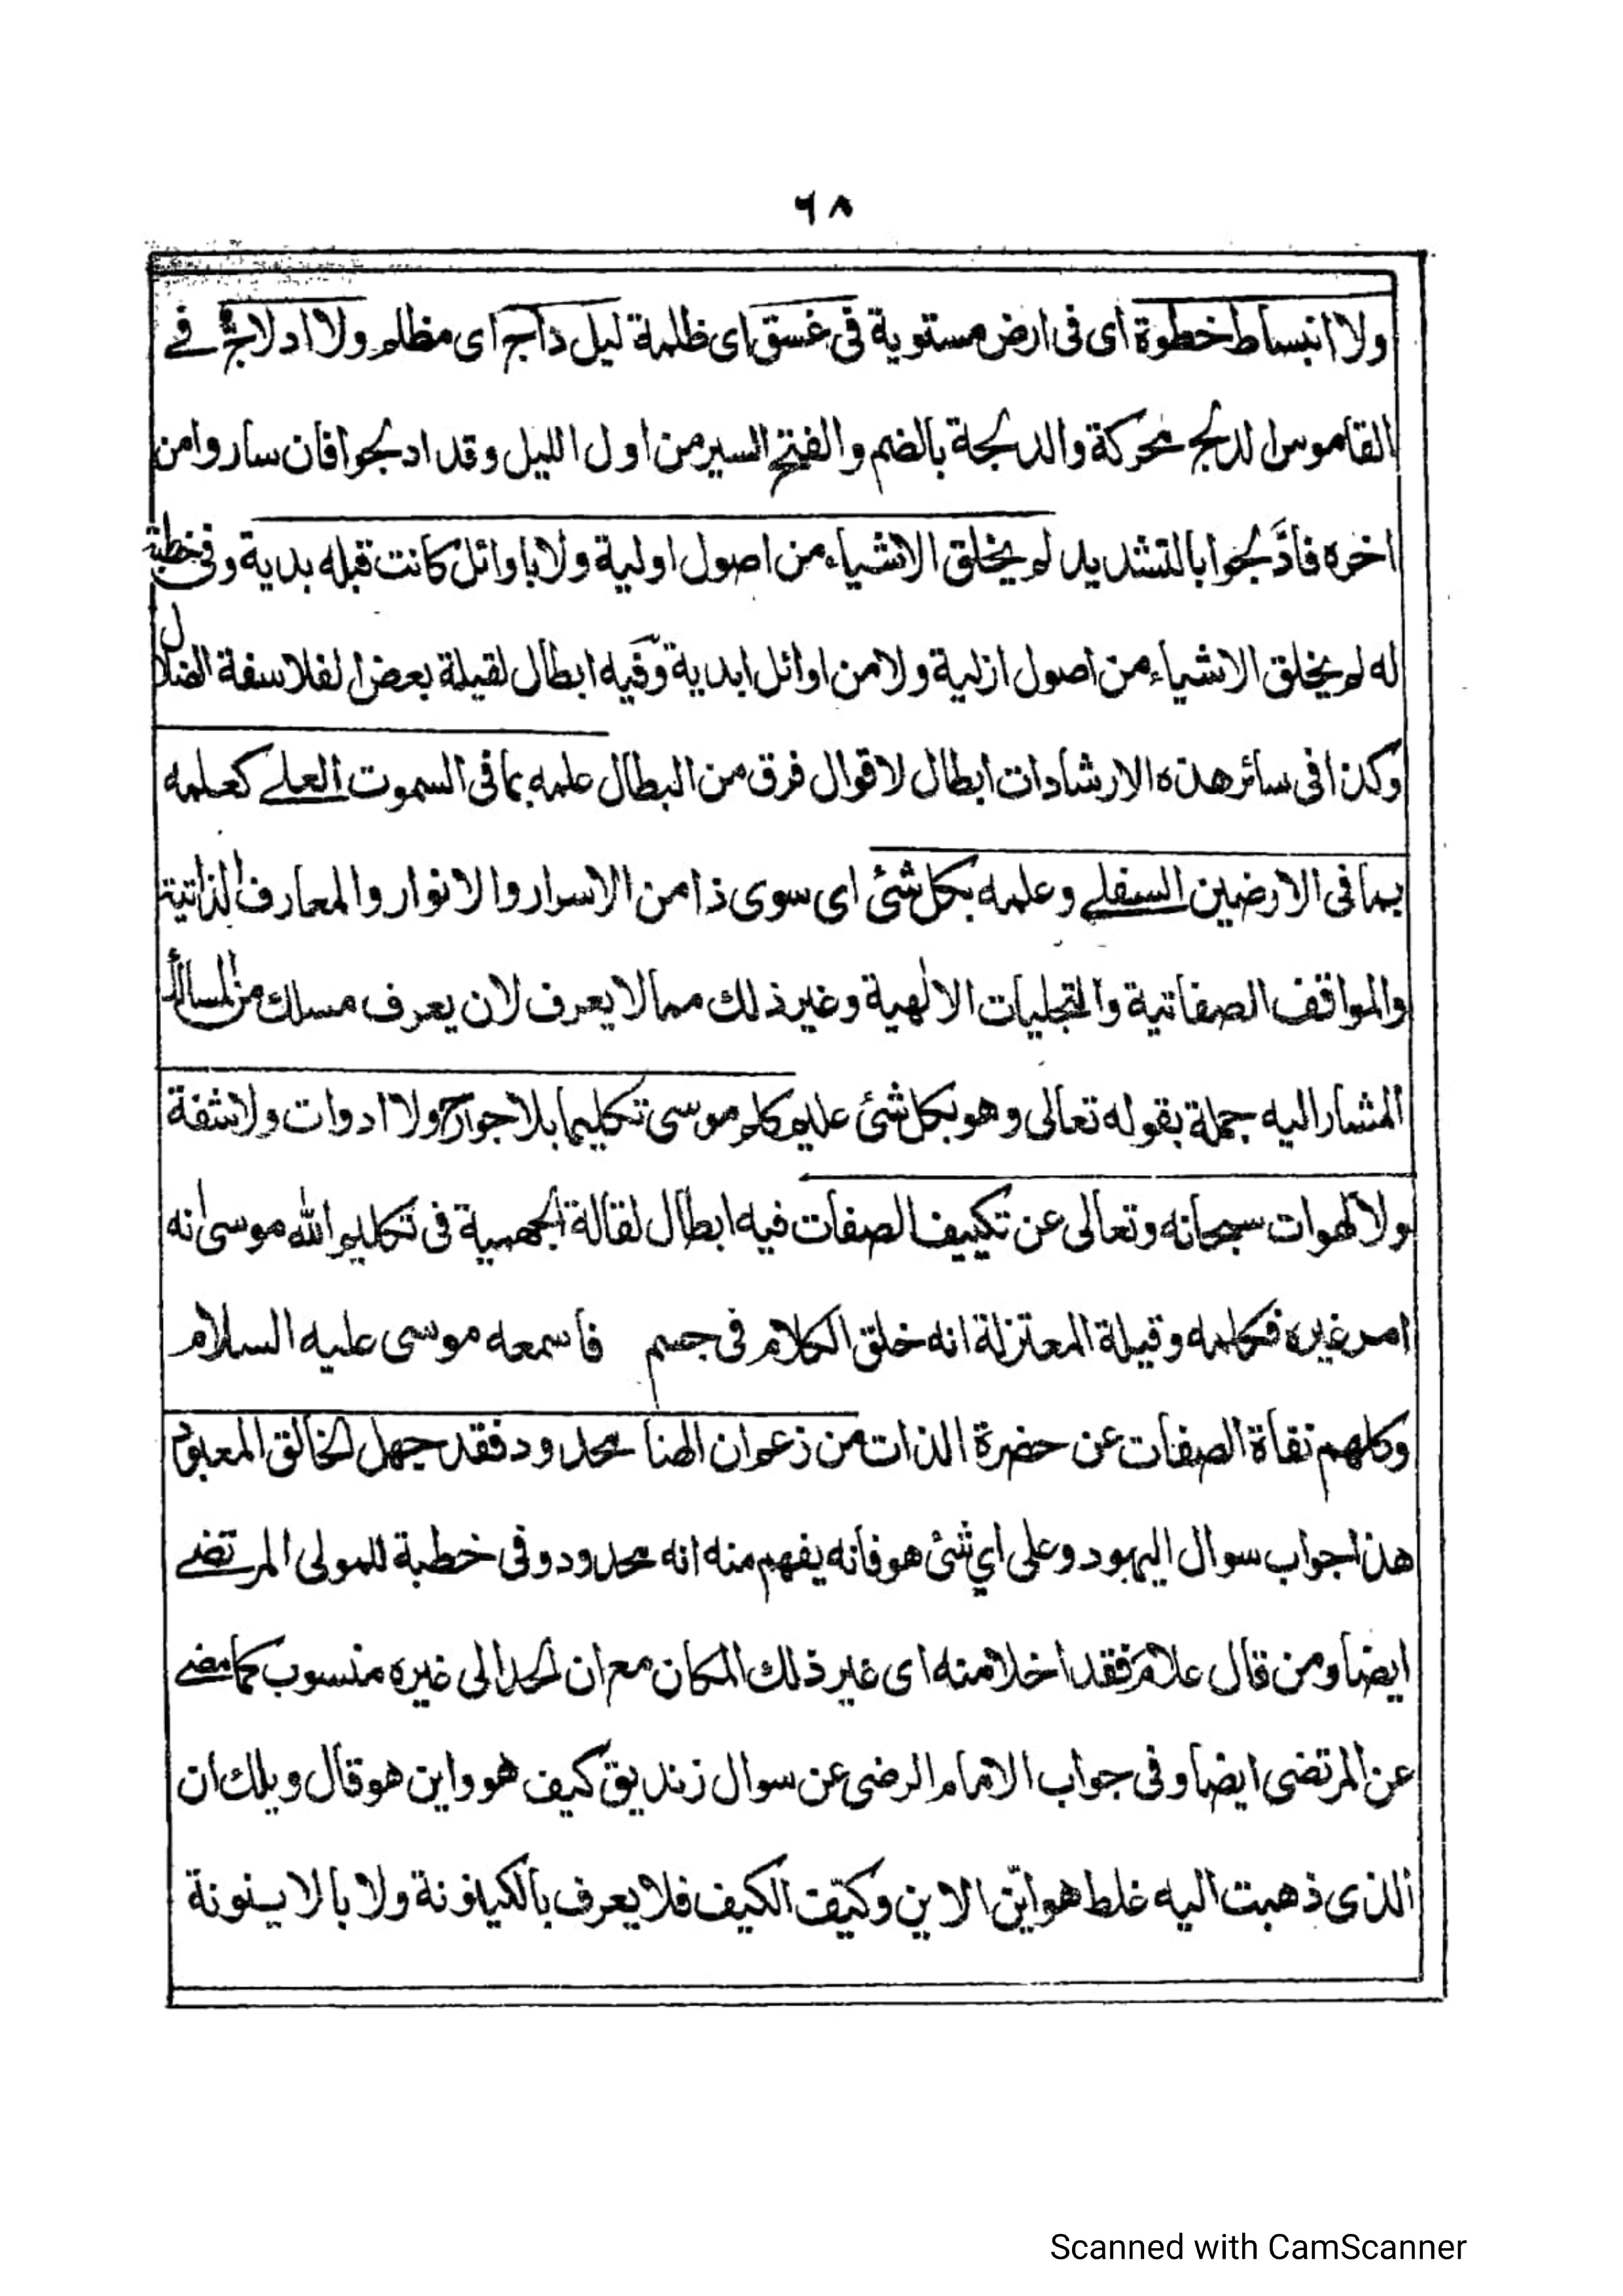 ٦٨
ولا انبساط خطوة اى فى ارض مستوية فى غسق اى ظلمة ليل داج اى مظلم ولا ادلاج فے
القاموس الدلج محركة والدلجة بالضم والفتح السير من اول الليل وقد ادلجوا فان ساروا من
اخره فادَّلجوا بالتشديد لم يخلق الاشياء من اصول اولية ولا باوائل كانت قبله بدية وفى خطبة
له لم يخلق الاشياء من اصول ازلية ولا من اوائل ابدية وفيه ابطال لقيلة بعض الفلاسفة الضلال
وكذا فى سائر هذه الارشادات ابطال لاقوال فرق من البطال علمه بما فى السموت العلے كعلمه
بما فى الارضين السفلے وعلمه بكل شئ اى سوى ذا من الاسرار والانوار والمعارف الذاتية
والمواقف الصفاتية والتجليات الالٰهية وغير ذلك مما لا يعرف لان يعرف مسلك من المسالك
المشار اليه جملة بقوله تعالى وهو بكل شئ عليم كلم موسى تكليما بلا جوارح ولا ادوات ولا شفة
ولا لهوات سبحانه وتعالى عن تكييف الصفات فيه ابطال لقالة الجهمية فى تكليم الله موسى انه
امر غيره فكلمه وقيلة المعتزلة انه خلق الكلام فى جسم فاسمعه موسى عليه السلام
وكلهم نفاة الصفات عن حضرة الذات من زعم ان الهنا محدود فقد جهل الخالق المعبود
هذا جواب سوال اليهود وعلى اي شئ هو فانه يفهم منه انه محدود وفى خطبة للمولى المرتضے
ايضا ومن قال علام فقد اخلا منه اى غير ذلك المكان مع ان الحد الى غيره منسوب كما مضے
عن المرتضى ايضا وفى جواب الامام الرضى عن سوال زنديق كيف هو واين هو قال ويلك ان
الذى ذهبت اليه غلط هو ايّن الاين وكيّف الكيف فلا يعرف بالكيفونة ولا بالاينونة
Scanned with CamScanner